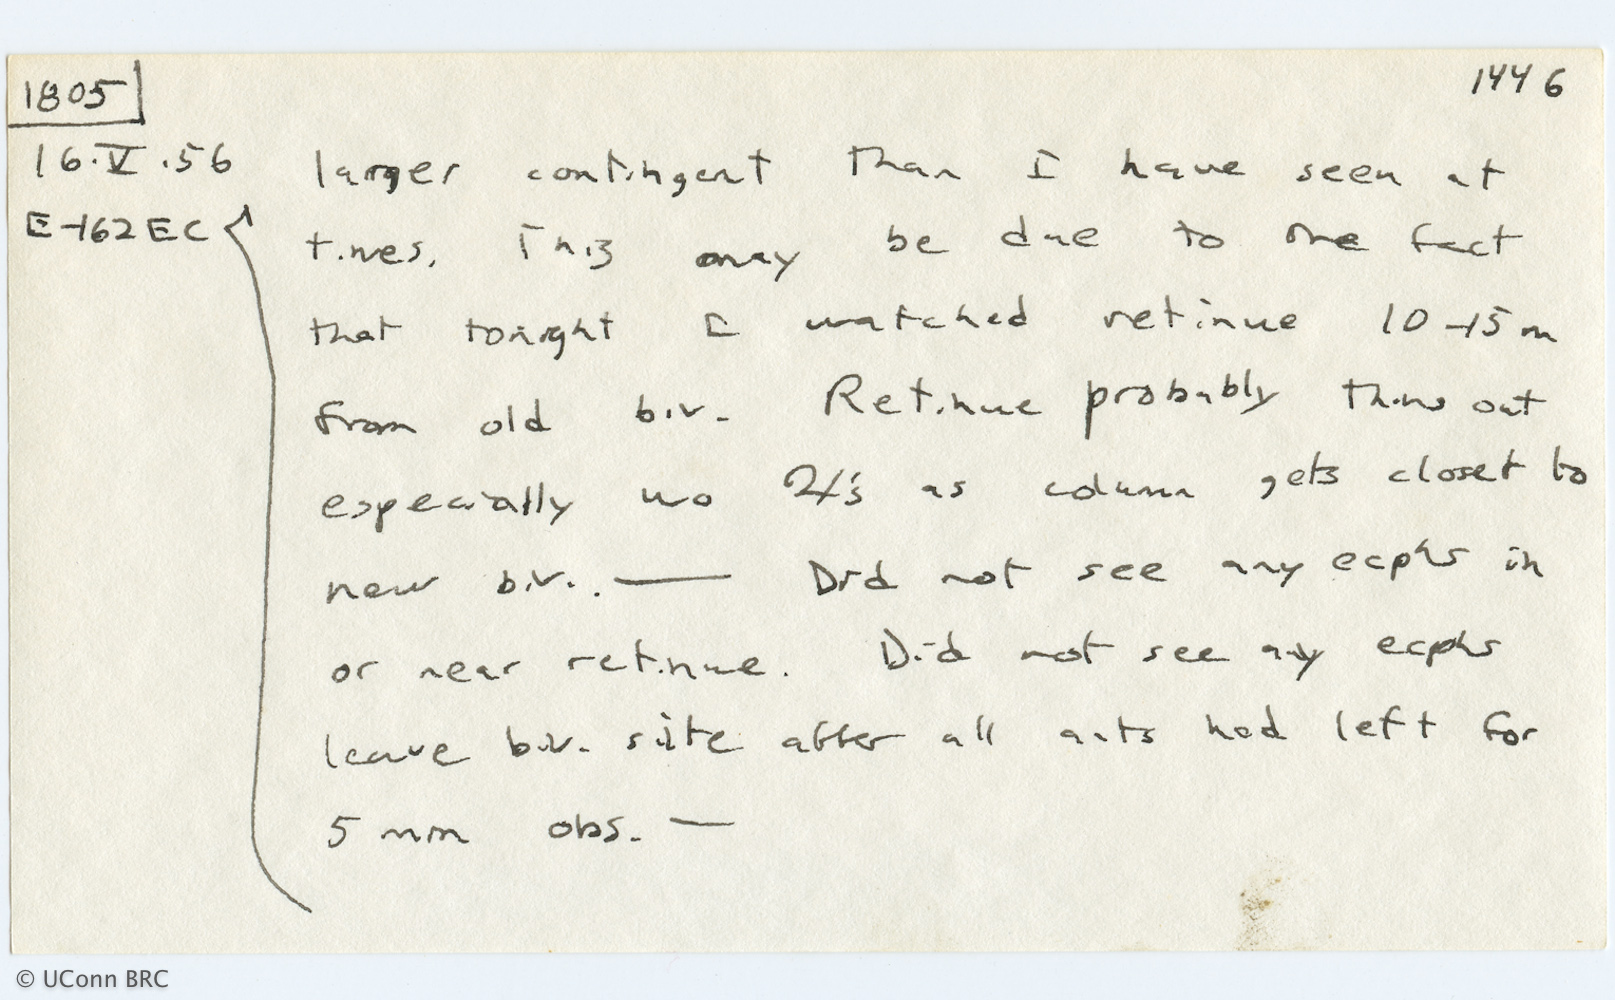 1805
1446
16.V.56
E-162EC
larger contingent than I have seen at
times. This may be due to the fact
that tonight I watched retinue 10-15m
from old biv. Retinue probably thins out
especially wo as column gets closer to
new biv. — Did not see any ecphs in
or near retinue. Did not see any ecphs
leave biv. site after all ants had left for
5 min obs. —
© UConn BRC